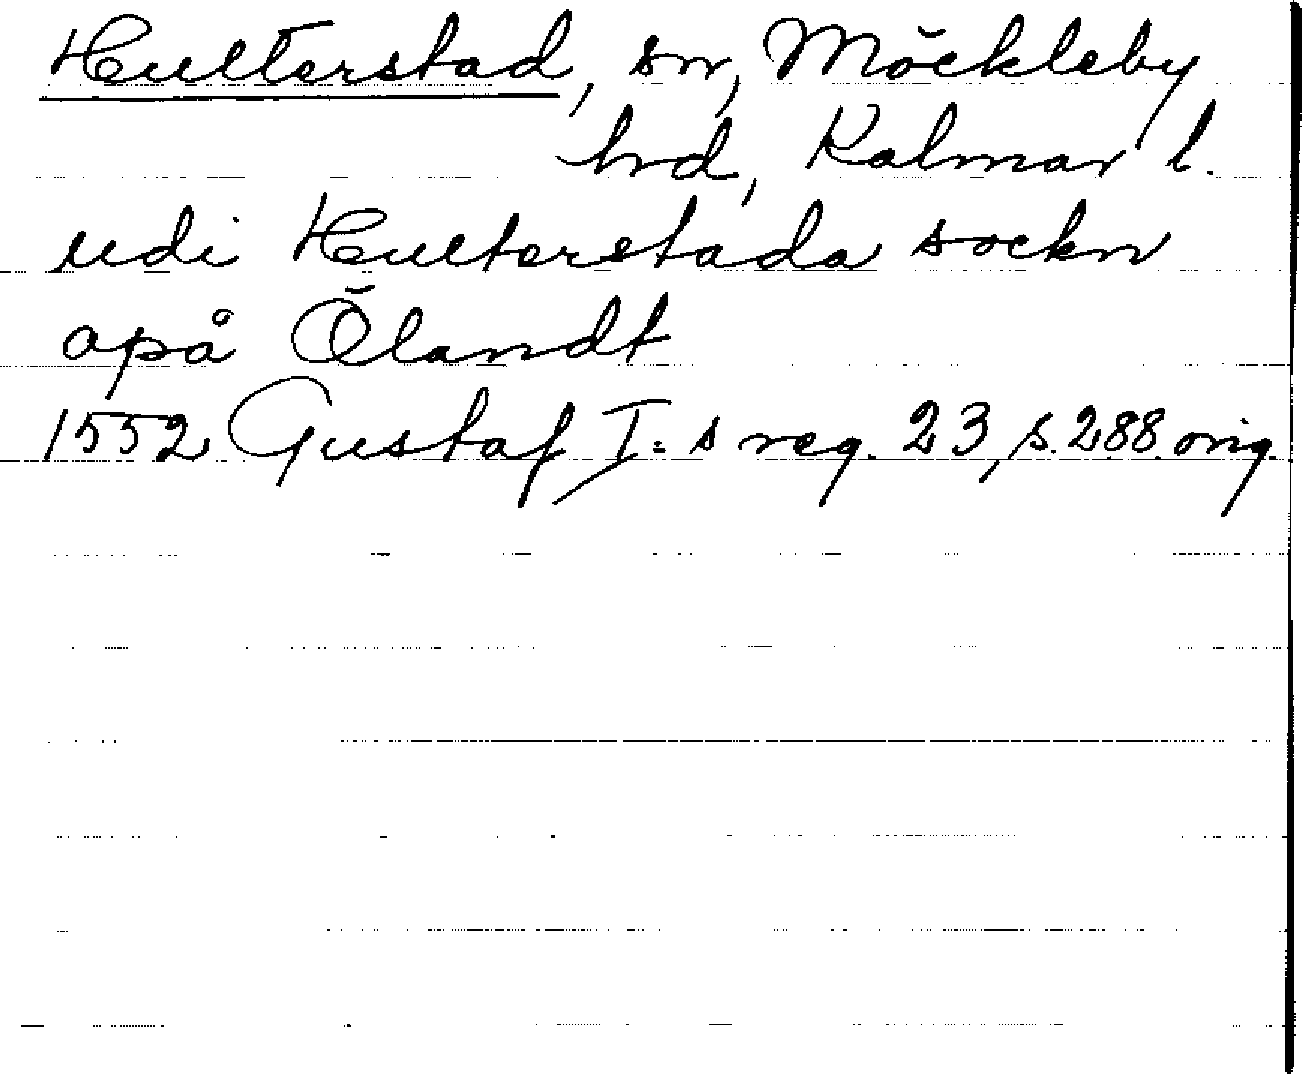 Hulterstad, sn, Möckleby
hrd, Kalmar l.
udi Hulterstada sockn
apå Ölandt
1552 Gustaf I:s reg. 23, s. 288. orig.